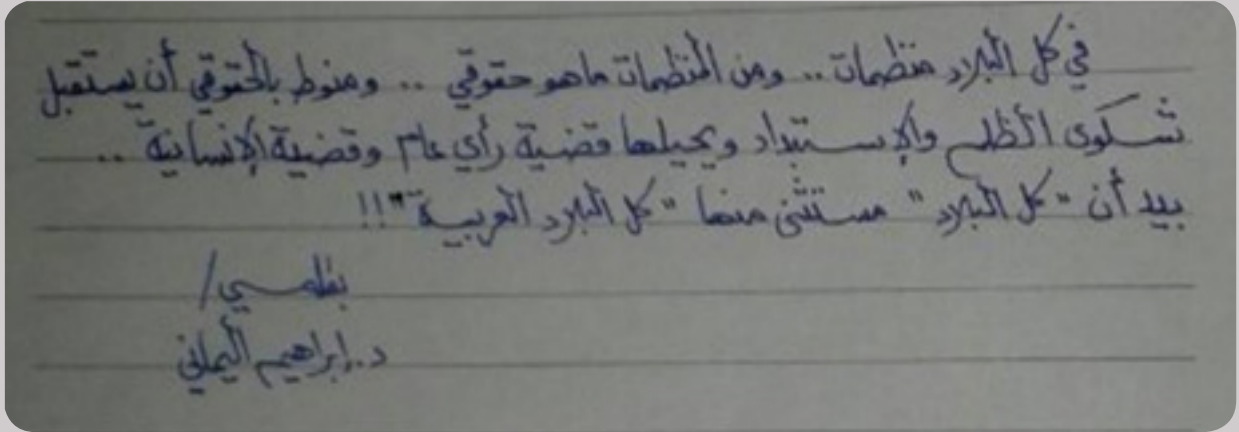 في كل البلاد منظمات .. ومن المنظمات ماهو حقوقي .. ومنوط بالحقوقي أن يستقبل
شكوى الظلم والإستبداد ويحيلها قضية رأي عام وقضية الإنسانية ..
بيد أن "كل البلاد" مستثنى منها "كل البلاد العربية"!!
بقلمي/
د.إبراهيم اليماني